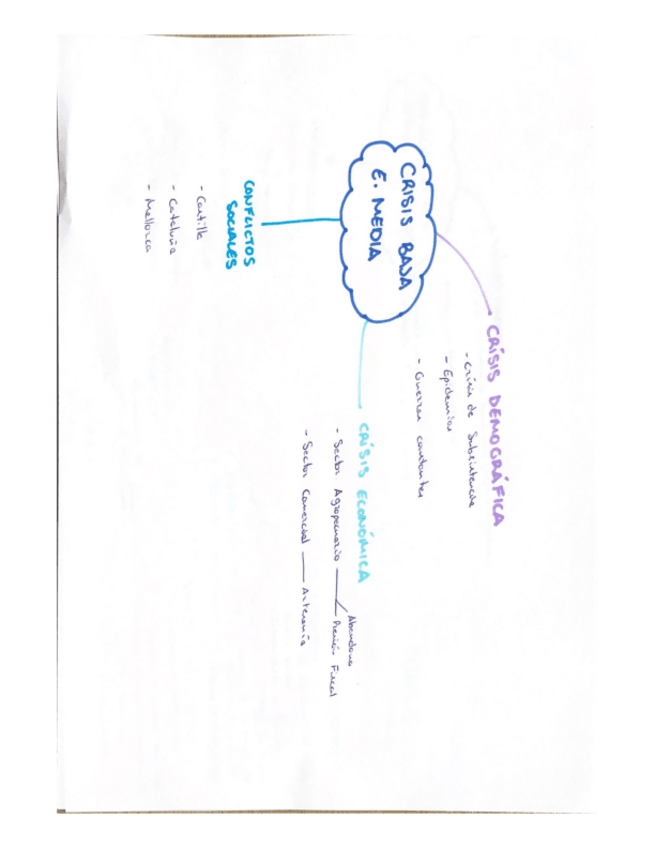 CRISIS BAJA
E. MEDIA
CRÍSIS DEMOGRÁFICA
- Crisis de Subsistencia
- Epidemias
- Guerras constantes
CRÍSIS ECONÓMICA
- Sector Agropecuario
Abandono
Presión Fiscal
- Sector Comercial — Artesanía
CONFLICTOS
SOCIALES
- Castilla
- Cataluña
- Mallorca